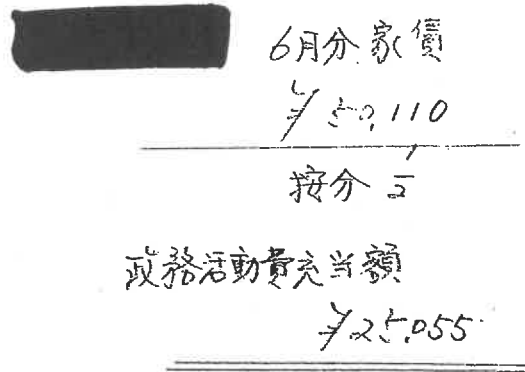 6月分家賃
¥50,110
按分 1/2
政務活動費充当額
¥25,055